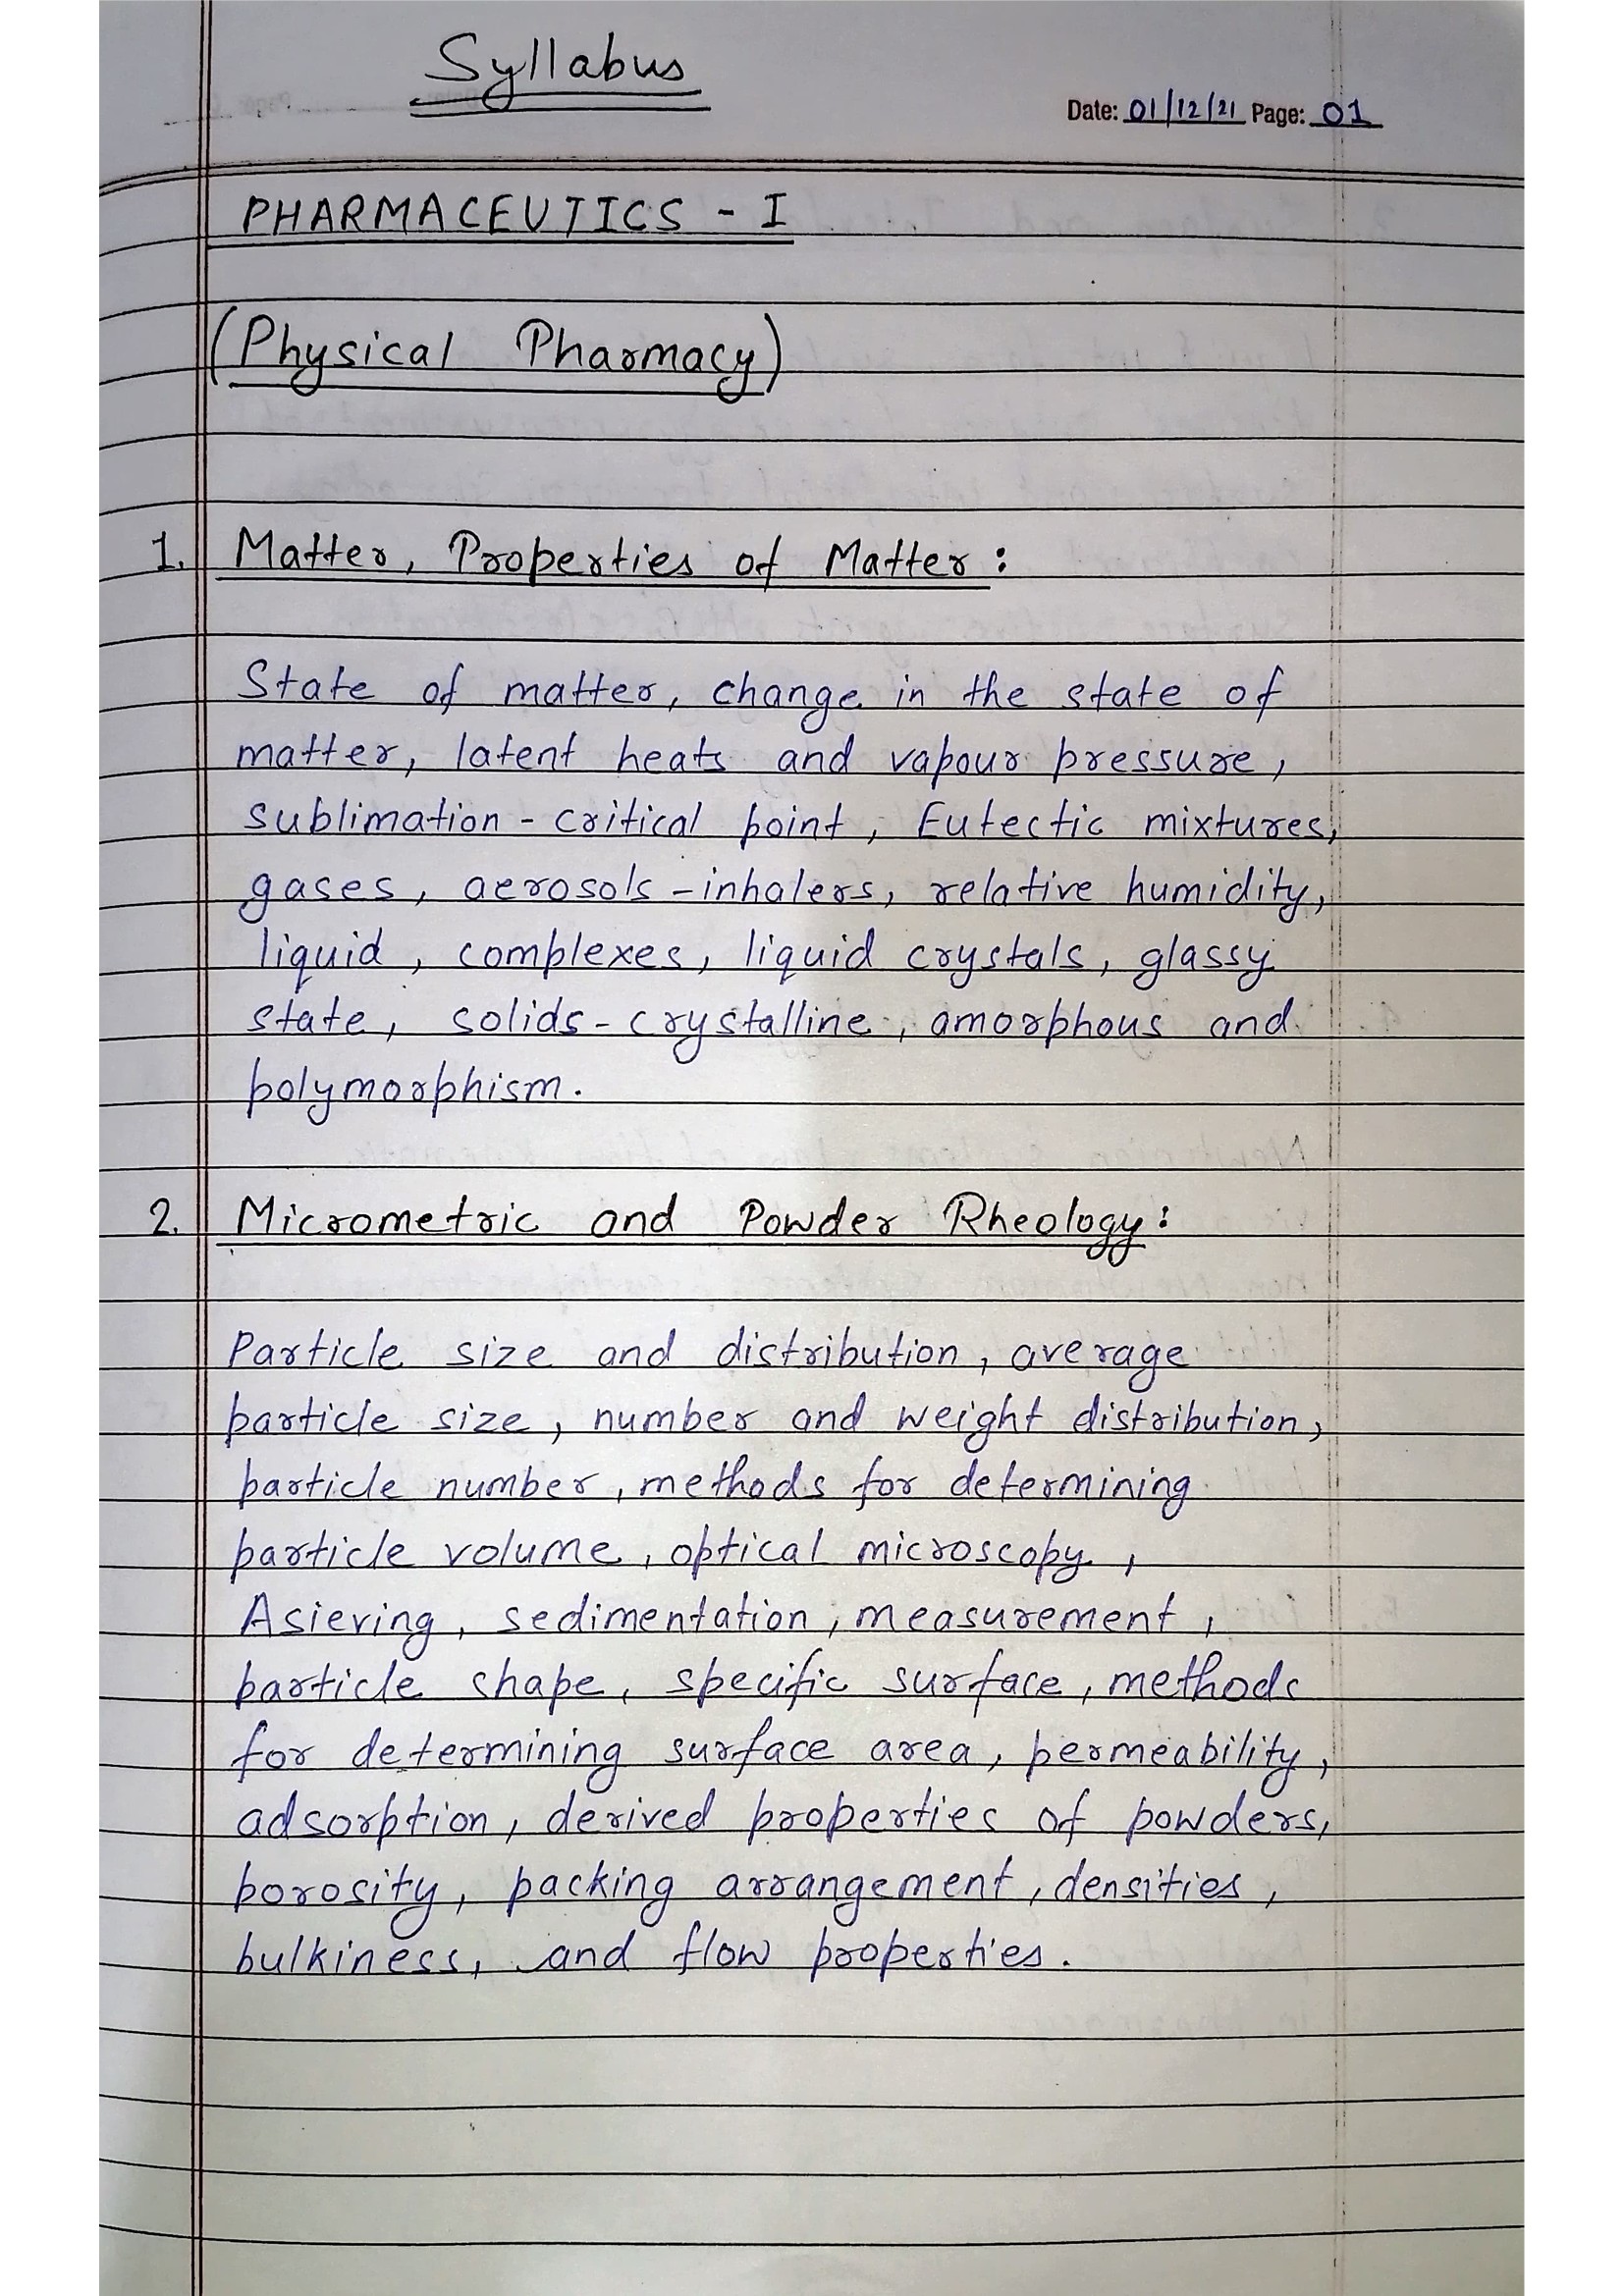 Syllabus
Date: 01/12/21 Page: 01
PHARMACEUTICS - I
(Physical Pharmacy)
1. Matter, Properties of Matter:
State of matter, change in the state of
matter, latent heats and vapour pressure,
sublimation - critical point, Eutectic mixtures,
gases, aerosols - inhalers, relative humidity,
liquid, complexes, liquid crystals, glassy
state, solids - crystalline, amorphous and
polymorphism.
2. Micrometric and Powder Rheology:
Particle size and distribution, average
particle size, number and weight distribution,
particle number, methods for determining
particle volume, optical microscopy,
Asieving, sedimentation, measurement,
particle shape, specific surface, methods
for determining surface area, permeability,
adsorption, derived properties of powders,
porosity, packing arrangement, densities,
bulkiness, and flow properties.